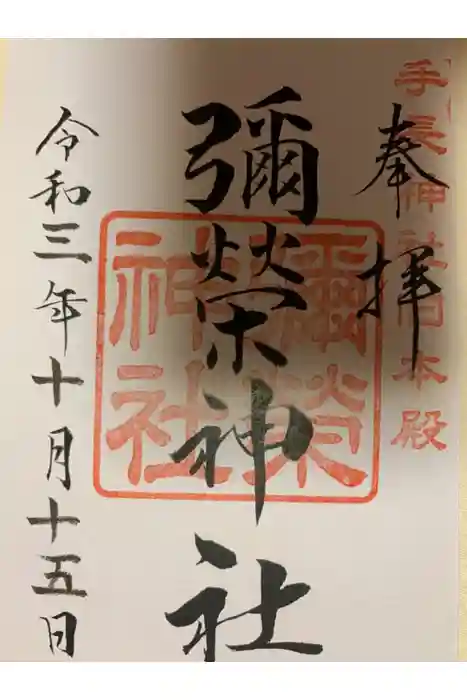 手長神社旧本殿
奉拝
彌榮神社
彌榮神社
令和三年十月十五日